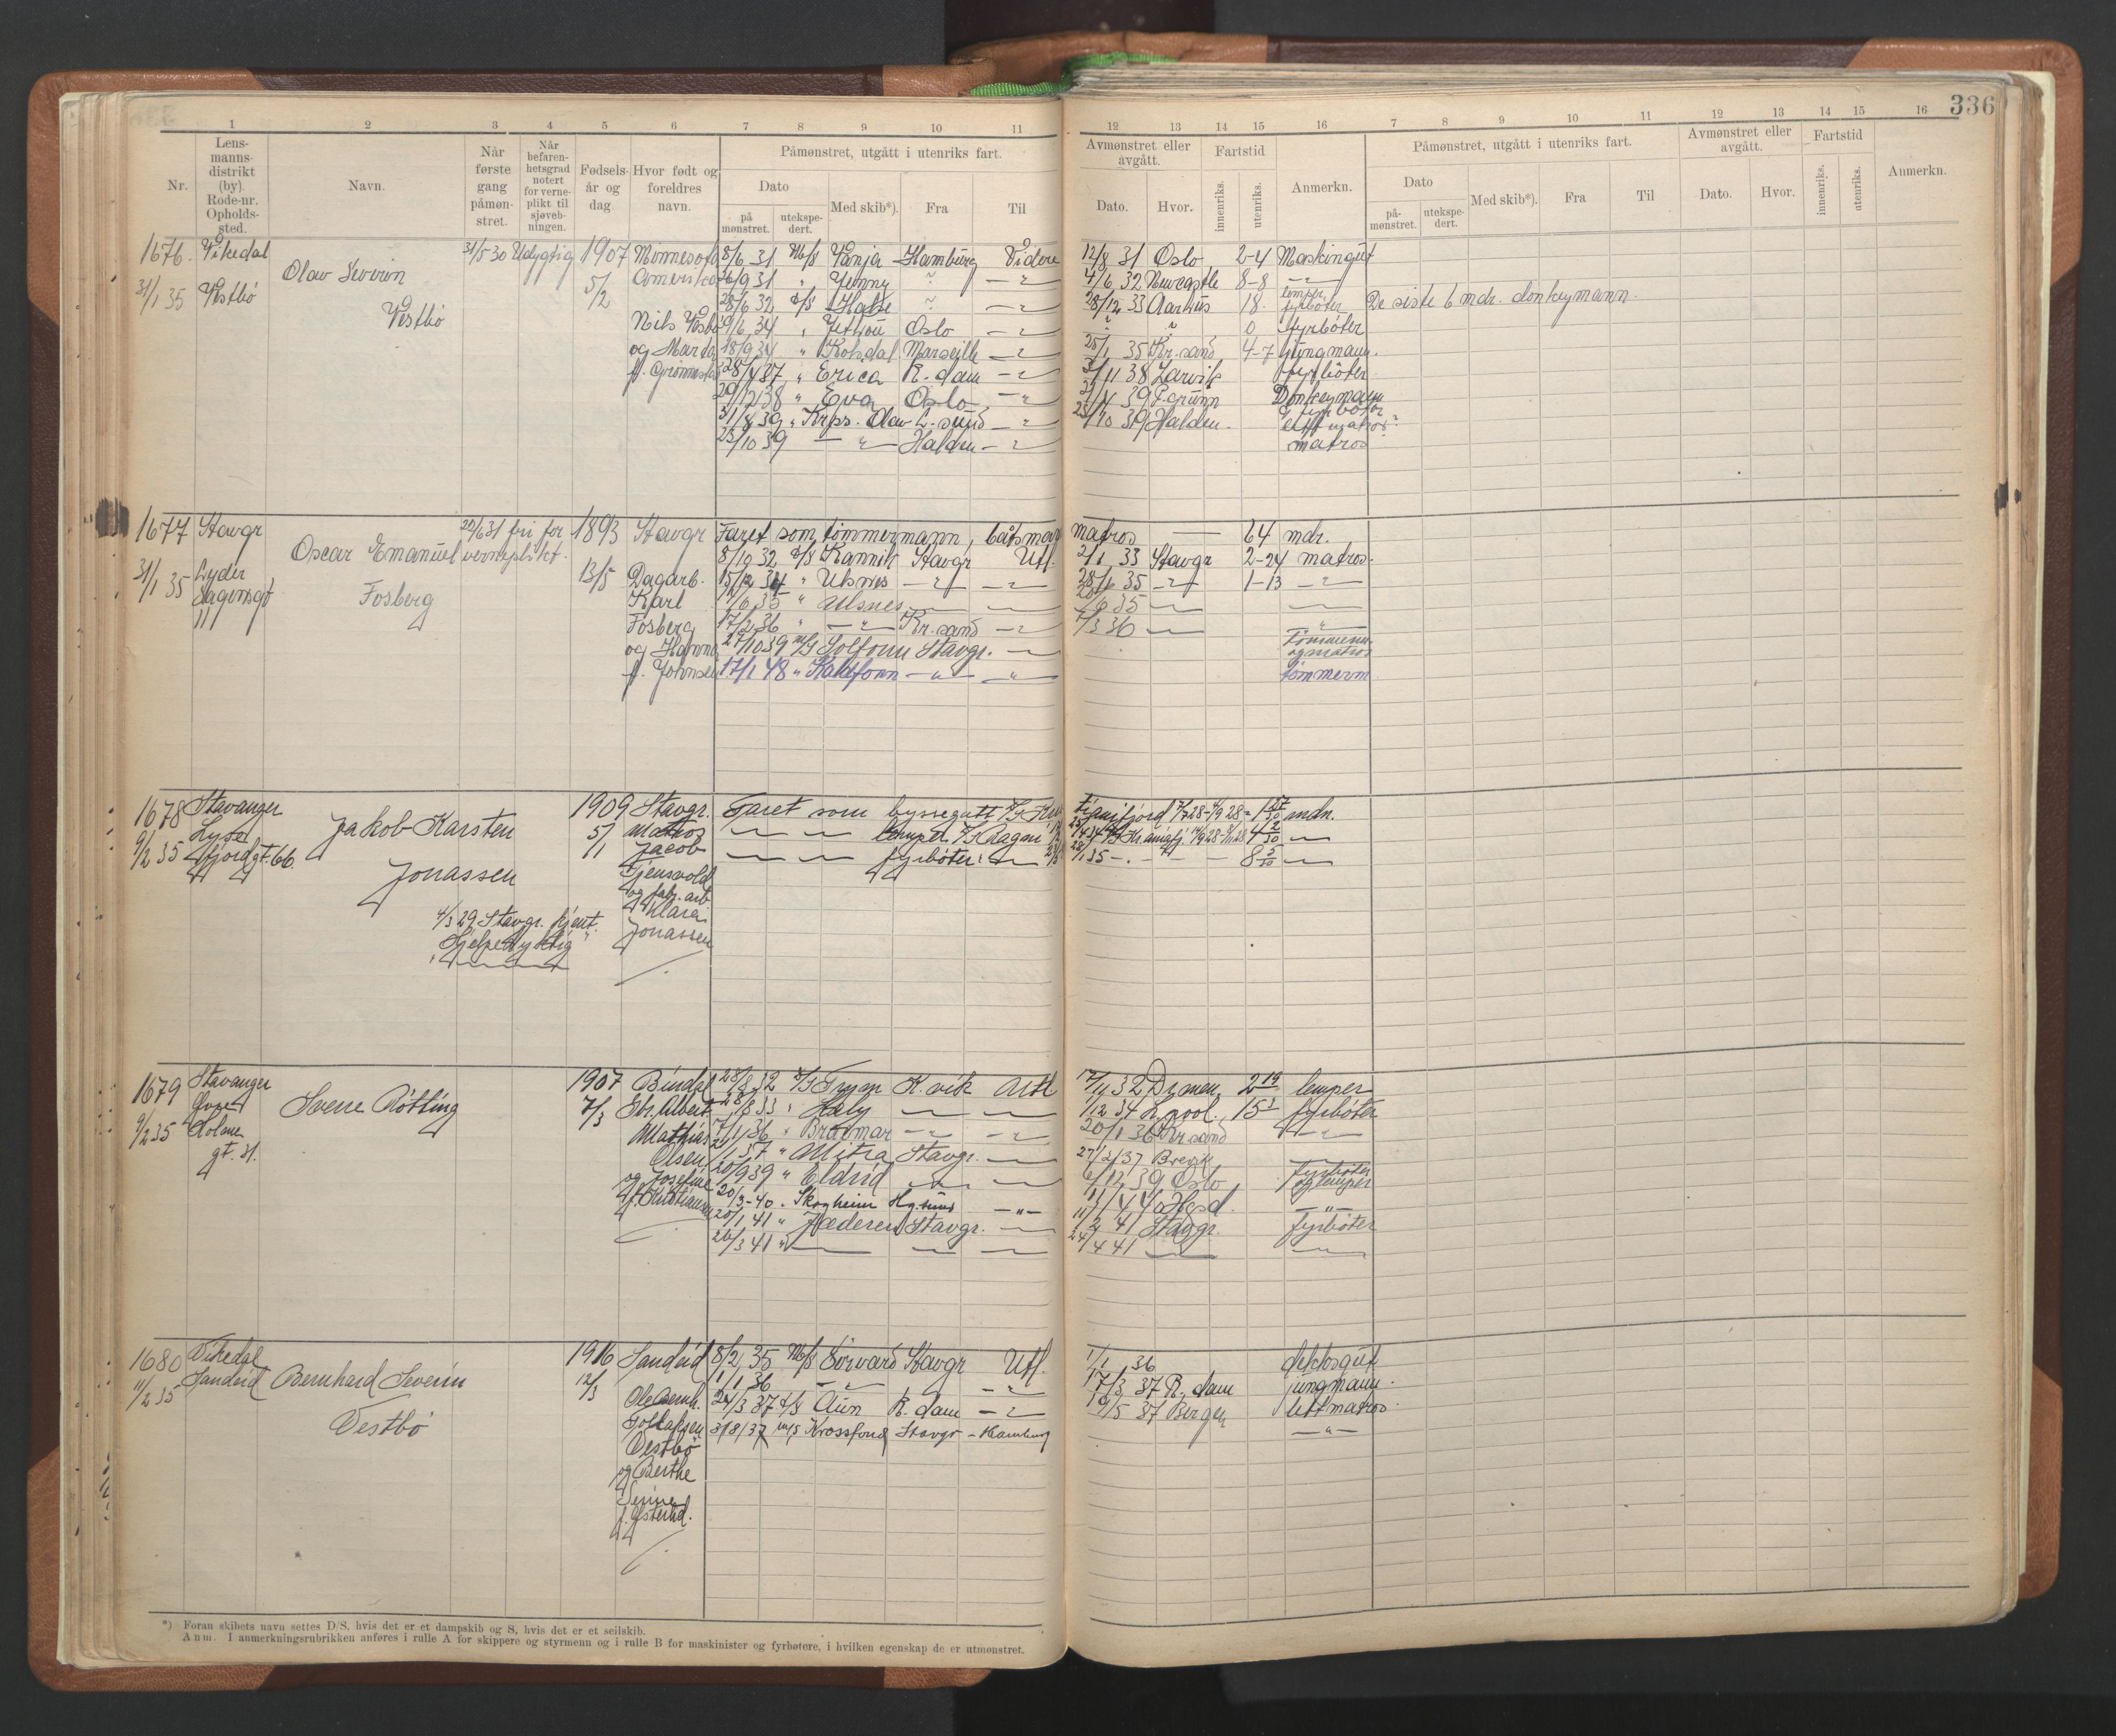 336
1 2 3 4 5 6 7 8 9 10 11
12 13 14 15 16 7 8 9 10 11 12 13 14 15 16
Nr.
Lens-
manns-
distrikt
(by).
Rode-nr.
Opholds-
sted.
Navn.
Når
første
gang
påmøn-
stret.
Når
befaren-
hetsgrad
notert
for verne-
plikt til
sjøveb-
ningen.
Fødsels-
år og
dag
Hvor født og
foreldres
navn.
Påmønstret, utgått i utenriks fart.
Dato
på
mønstret.
utekspe-
dert.
Med skib*).
Fra
Til
Avmønstret eller
avgått.
Dato.
Hvor.
Fartstid
innenriks.
utenriks.
Anmerkn.
Påmønstret, utgått i utenriks fart.
Dato
på-
mønstret.
utekspe-
dert.
Med skib*).
Fra
Til
Avmønstret eller
avgått.
Dato.
Hvor.
Fartstid
innenriks.
utenriks.
Anmerkn.
1676. Vikedal
31/1 35 Vestbö
Olav Severin
Vestbö
31/5 30 Udygtig 1907
5/2
Minnesota
Amerika
Nils Vestbö
og Marta
f.
8/6 31 M/S Vanja Hamburg Videre 12/8 31 Oslo 2-4 Maskingut
26/9 31 " Jenny 4/6 32 Newcastle 8-8
28/6 32 28/12 33 Aarhus 18 lemper fyrböter De siste 6 mdr. donkeymann.
9/6 34 Oslo 0 fyrböter
18/9 34 " Marseille 25/1 35 Kr.sand 4-7 jungmann.
28/4 37 " Erica R.dam 3/11 38 Larvik fyrböter
20/12 38 " Eva Oslo 39 P.grunn Donkeymann
31/8 39 " Krps. Olav L.sund 25/10 39 Halden. lettmatros
25/10 39 Halden matros
1677 Stavgr
31/1 35 Lyder
Sagensgt
11
Oscar Emanuel
Fosberg
20/6 31 fri for
verneplikt.
1893
13/5
Stavgr
Dagarb.
Karl
Fosberg
og Hanna
f. Johnsen
Faret som tömmermann, båtsmann matros 64 mdr.
8/10 32 D/S Kannik Stavgr Utl. 2/1 33 Stavgr 2-24 matros.
15/12 34 " Ulsnes 28/1 35 1-13
6 35 " Ulsnes 6 35
17/2 36 " Kr.sand 7/3 36
27/10 39 M/S Solfonn Stavgr. Tömmerm. og matros
17/1 48 " Kaldfonn tömmerm
1678 Stavanger
9/2 35 Lyse
fjordgt. 66.
Jakob Karsten
Jonassen
4/3 29 Stavgr. kjent.
Hjelpedyktig
1909
5/1
Stavgr.
Matros
Jacob
Tjensvold
og fabr.arb.
Klara
Jonassen
Faret som byssegutt mdn.
lemper
fyrböter
1679 Stavanger
9/2 35 Övre
Holme
gt. 31.
Sverre Røtting
1907
7/3
Bindal
Gbr. Albert
Mathias
Olsen
og Josefine
f. Kristiansen
28/8 32 D/S Trym K.vik Utl. 17/11 32 Drmen. 2 19 lemper
28/8 33 " Hæly 1/12 34 L.pool. 15 fyrböter
7/1 36 " Bravmar 20/1 36 Kr.sand
1/1 37 " Mitra Stavgr. 27/2 37 Brevik
20/9 39 " Eldrid 6/12 39 Oslo fyrböter og lemper
20/3-40. Skogheim Hg.sund
20/1 41 " Jæderen Stavgr. 11/2 41 Stavgr. fyrböter
26/3 41 " 24/4 41
1680 Vikedal
11/2 35 Sandeid
Bernhard Severin
Vestbö
1916
12/3
Sandeid
Ole Bernh.
Tollaksen
Vestbö
og Berthe
Serine
8/2 35 M/S Sörvard Stavgr Utl. 1/1 36 dekksgut
1/1 36 17/3 37 R.dam jungmann.
24/3 37 D/S Aun R.dam 19/5 37 Bergen lettmatros.
31/8/37 M/S Krossfond Stavgr - Hamburg
*) Foran skibets navn settes D/S, hvis det er et dampskib og S, hvis det er et seilskib.
Anm. I anmerkningsrubrikken anføres i rulle A for skippere og styrmenn og i rulle B for maskinister og fyrbøtere, i hvilken egenskap de er utmønstret.